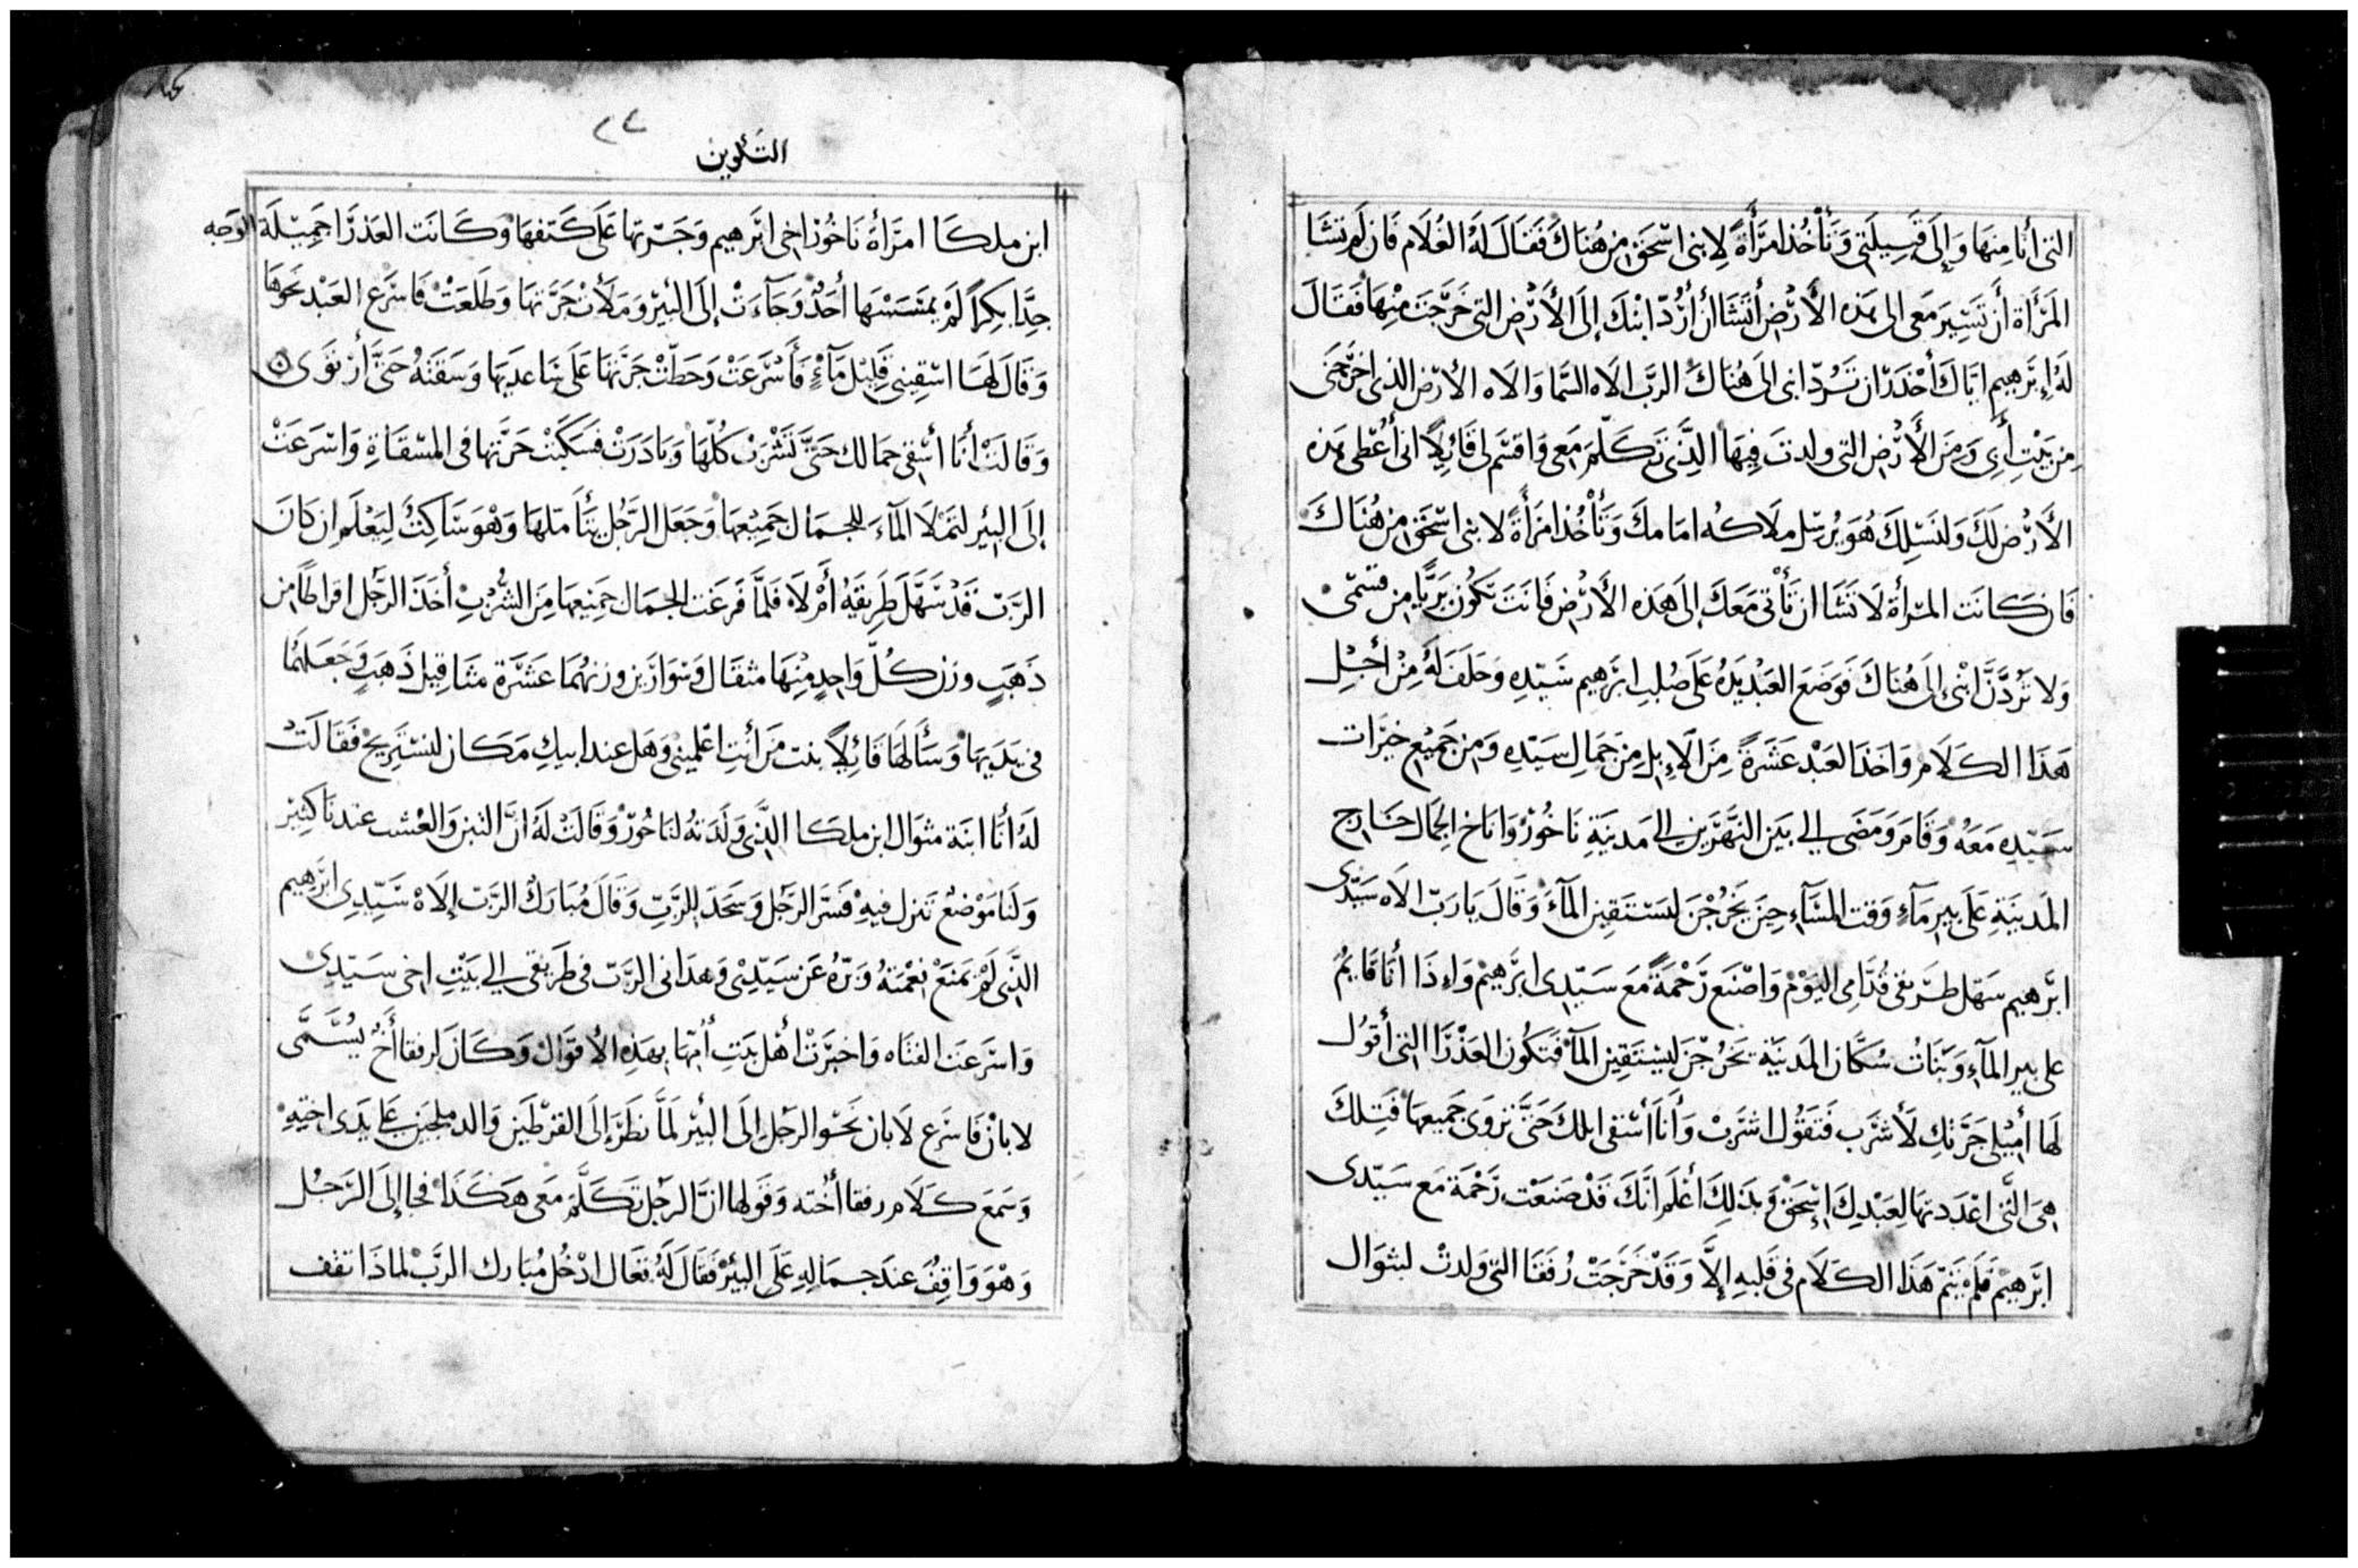 التى أنا مِنهَا وَإلَى قَبِيلَتِى وَتَأْخُذ امرَأَةً لِابنى اسْحَق مِن هُنَاكَ فَقَالَ لَهُ الغُلَام فَان لَم تشَا
المَرْأة أَن تَسِّيرَ مَعى الى هَذه الأَرْضِ أتَشَا أن أَرُدّ ابْنكَ إلَى الأَرْضِ التى خَرَجْتَ مِنْهَا فَقَالَ
لَهُ إِبْرَهِيم ايَّاكَ أحْذَر ان تَرُدّ ابنى الَى هُنَاكَ الربّ الَاه السَّمَا وَالَاه الأَرْض الذى اخرَجَنى
مِن بَيْتِ أَبِى وَمِنَ الأَرْضِ التى ولدتَ فِيهَا الَّذِى تَكَلَّمَ مَعى وَاقسَم لى قَائِلًا انى أُعْطى هَذه
الأَرْض لَكَ وَلنَسْلِكَ هُوَ يُرسِّل ملَاكه امَامكَ وَتَأْخُذ امرَأَةً لابنى اسْحَق مِن هُنَاكَ
فَان كَانَت المرْأَة لَا تَشَا ان تَأْتى مَعَكَ إلَى هَذه الأَرْضِ فَانتَ تَكُون بَرِيًّا مِن قسَمى
وَلا تَرُدَّنَّ ابْنى الى هُنَاكَ فَوَضَعَ العَبْد يَدَهُ عَلَى صُلبِ ابْرَهِيم سَيّدِهِ وَحَلَفَ لَهُ مِنْ أجْلِ
هَذَا الكَلَام وَاخَذ العَبْد عَشَرَةً مِنَ الإِبِلِ مِنْ جِمَالِ سَيّدِهِ وَمِن جَمِيعِ خيرَات
سَيّدِهِ مَعَهُ وَقَامَ وَمَضَى إلى بَين النَّهْرَين إلى مَدينَةِ نَاحُورْ وَانَاخ الجِمَال خَارج
المَدينَةِ عَلَى بِيرِ مَآءٍ وَقت المسَآءِ حِينَ يَخْرُجْنَ ليَسْتَقِين المَآءَ وَقَالَ يَارَبّ الَاه سَيّدى
ابْرَهِيم سَهّل طَرِيقى قُدَّامِى اليَوْمْ وَاصْنَع رَحْمَةً مَعَ سَيّدِى ابْرَهِيمْ وَإِذَا أنَا قَايِمٌ
على بير المآءِ وَبَنَاتُ سُكَّان المَدينَةِ تَخْرُجْنَ ليَسْتَقِين المآءَ فَتَكُون العَذْرَا التى أقُولُ
لَهَا أَمِيلى جَرَّتكِ لَأَشْرَب فَتَقُول اشرَبْ وَأَنَا أسْقى ابلكَ حَتَّى تروَى جَميعهَا فَتِلكَ
هِىَ الَّتى اعْدَدتهَا لِعَبْدِكَ إسْحَقْ وَبذَلِكَ أعْلَم انَّكَ قَدْ صَنَعْت رَحْمَة مَع سَيّدى
ابْرَهِيمْ فَلَمْ يَتمّ هَذَا الكَلَام فى قَلبِهِ إلَّا وَقَدْ خَرَجَتْ رُفقَا التى وَلدتْ لبثوَال
التكوين
٢٤
ابن ملكَا امرَأَة نَاحُورْ اخى ابْرَهِيم وَجَرّتهَا عَلَى كَتفهَا وَكَانَت العَذرَا جَمِيلَة الوَجه
جِدًّا بِكرًا لَمْ يَمسَسْهَا أحَدٌ وَجَآءَتْ إلَى البئرِ وَمَلَأَتْ جَرَّتهَا وَطَلعَتْ فَاسْرَع العَبْد نَحْوهَا
وَقَالَ لهَا اسْقِينى قَلِيل مَآءٍ فَأَسْرَعَتْ وَحَطّتْ جَرَّتهَا عَلَى سَاعديهَا وَسَقَتهُ حَتَّى أن رَوَى
وَقَالَتْ أنَا أسْقى جمَالك حَتَّى تَشْرَبْ كُلّهَا وَبَادَرَتْ فَسَكَبَتْ جَرَّتها فى المسْقَاةِ وَاسْرَعَتْ
إلَى البئِر لتَملَا المآءَ للجمَال جَمِيعهَا وَجَعَل الرَّجُل يَتَأَملهَا وَهْوَ سَاكِتٌ لِيَعْلَم ان كَانَ
الربّ قَدْ سَهّلَ طَرِيقَهُ أَمْ لَا فَلمَّا فَرغَت الجمَال جَمِيعهَا مِنَ الشُّرْبِ أخَذ الرَّجُل اقرَاطًا مِن
ذَهَبٍ وزن كُلّ وَاحِدٍ مِنْهَا مثقَال وَسوَارَين وزنهُمَا عَشَرَة مثَاقِيل ذَهَبٍ وَجَعَلهُمَا
فى يَدَيهَا وَسَأَلهَا قَائِلًا بنت مَن أنتِ اعْلِمينى وَهَل عند ابيكِ مَكَان لنَستَرِيح فَقَالَتْ
لَهُ أنَا ابنَة بثوَال ابن ملكَا الَّذى وَلَدَتهُ لنَاحُورْ وَقَالَتْ لَهُ انَّ التبن وَالعُشب عندنَا كَثِيرْ
وَلَنَا مَوْضعٌ تَنزل فيهِ فَسَّرَ الرَّجُل وَسَجَدَ للرَّبّ وَقَالَ مُبَارَكٌ الرَّبّ إلَاهُ سَيّدِى ابْرَهِيم
الَّذِى لَمْ يَمنَعْ نِعْمَتهُ وَبرّهُ عَن سَيّدِى وَهدَانى الربّ فى طَرِيقى إلى بَيْتِ اخى سَيّدِى
وَاسْرَعَت الفتَاه وَاخبَرَتْ أهْل بَيتِ أُمّهَا بهَذِهِ الأقوَال وَكَانَ لرفقَا أَخٌ يُسَّمَّى
لابانْ فَاسرَع لَابان نَحْو الرَجُل إلَى البئر لمَّا نَظَرَ إلَى القرْطَين وَالدملجَين عَلى يَدَى اختِهِ
وَسَمَعَ كَلَام رفقَا أُخته وَقَولهَا انَّ الرجُل تَكَلَّمَ مَعى هَكَذَا فجَا إلَى الرَّجُل
وَهْوَ وَاقِفٌ عندَ جمَالِهِ عَلَى البئرْ فَقَالَ لَهُ تعَال ادْخُل مُبَارك الرَّبْ لمَاذَا تقف